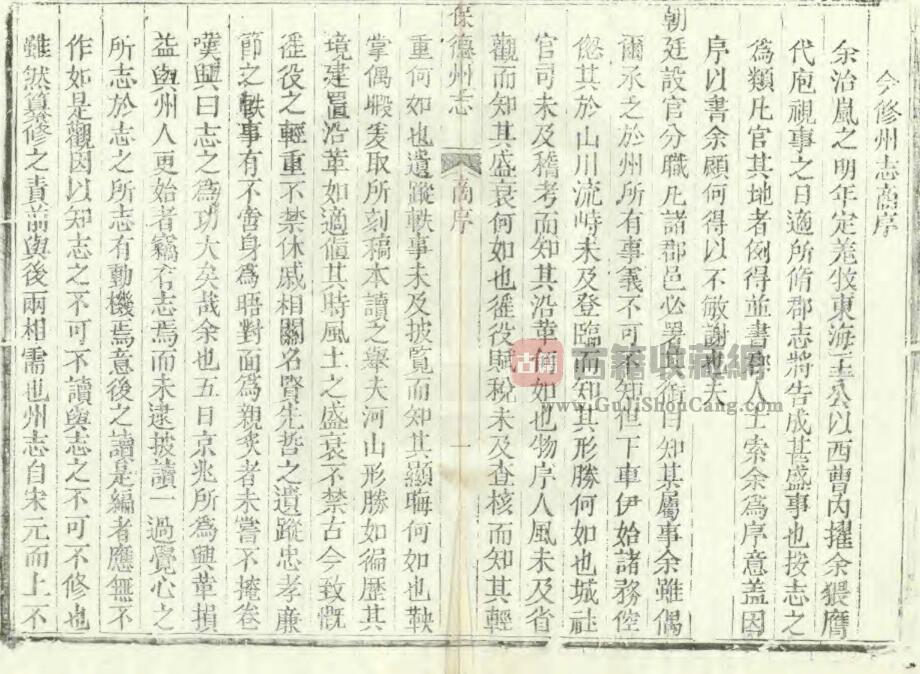 今修州志高序
余治嵐之明年定羌牧東海王公以西曹内擢余猥膺
代庖視事之日適所脩郡志將告成甚盛事也按志之
為類凡官其地者例得並書
人士索余為序意盖因
序以書余顧何得以不敏謝也夫
朝廷設官分職凡諸郡邑必署
知其屬事余雖偶
爾承之於州所有事義不可
知但下車伊始諸務倥
偬其於山川流峙未及登臨而知其形勝何如也城社
官司未及稽考而知其沿革何如也物序人風未及省
觀而知其盛衰何如也徭役賦稅未及查核而知其輕
保德州志
高序
一
重何如也遺蹤軼事未及披覧而知其顯晦何如也鞅
掌偶暇爰取所刻稿本讀之舉大河山形勝如徧歴其
境建置沿革如適值其時風土之盛衰不禁古今致慨
徭役之輕重不禁休戚相關名賢先哲之遺蹤忠孝廉
節之軼事有不啻身為晤對面為親炙者未嘗不掩卷
嘆興曰志之為功大矣哉余也五日京兆所為興革損
益與州人更始者竊有志焉而未逮披讀一過覺心之
所志於志之所志有動機焉意後之讀是編者應無不
作如是觀因以知志之不可不讀與志之不可不修也
雖然纂修之責前與後兩相需也州志自宋元而上不
古籍收藏網
www.GuJiShouCang.com